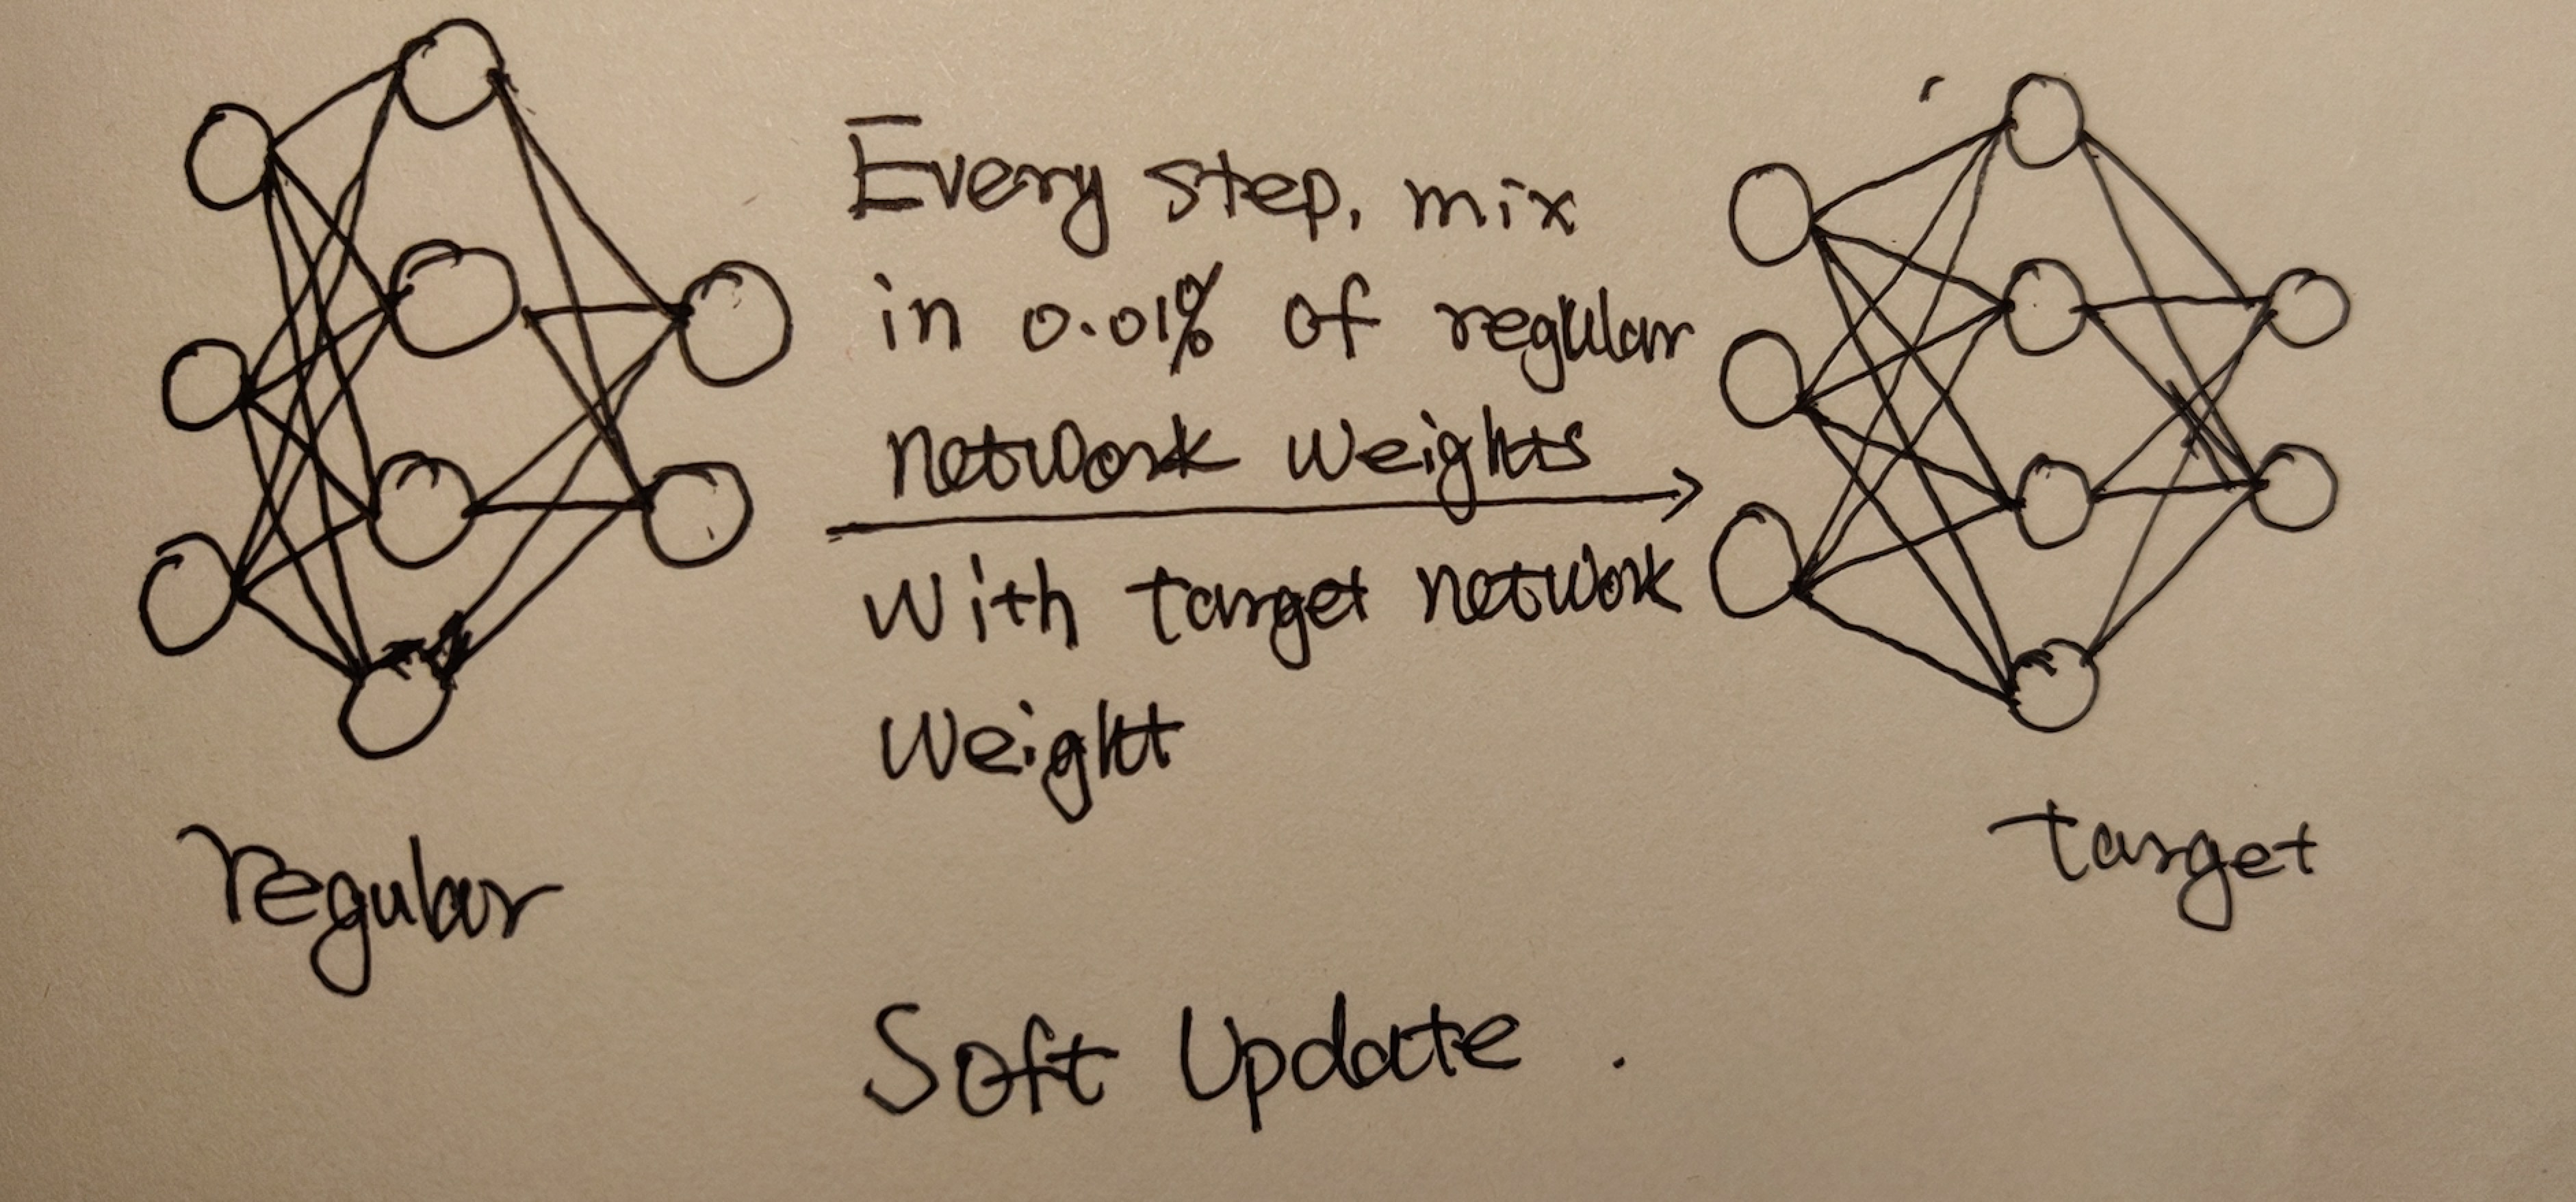 Every step, mix
in 0.01% of regular
network weights
with target network
weight
regular
target
Soft Update.